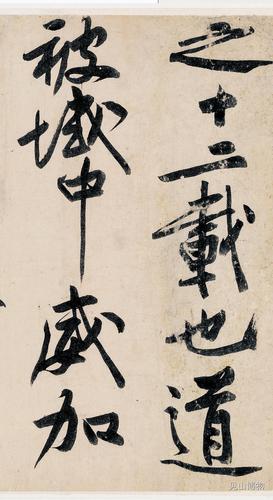 之十二載也道
被域中威加
见山博物